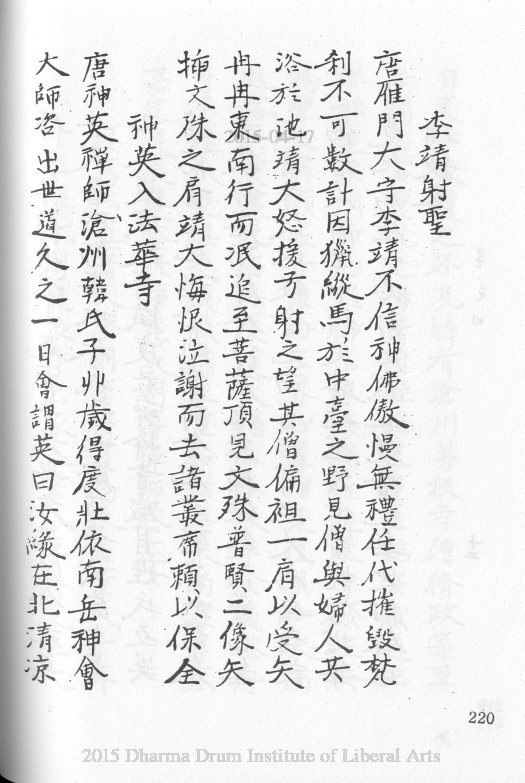 李靖射聖
唐雁門太守李靖不信神佛傲慢無禮任代摧毀梵
剎不可數計因獵縱馬於中臺之野見僧與婦人共
浴於池靖大怒援弓射之望其僧偏袒一肩以受矢
冉冉東南行而泯追至菩薩頂見文殊普賢二像矢
插文殊之肩靖大悔恨泣謝而去諸叢席賴以保全
神英入法華寺
唐神英禪師滄州韓氏子丱歲得度壯依南岳神會
大師咨出世道久之一日會謂英曰汝緣在北清涼
2015-04-17
220
2015 Dharma Drum Institute of Liberal Arts